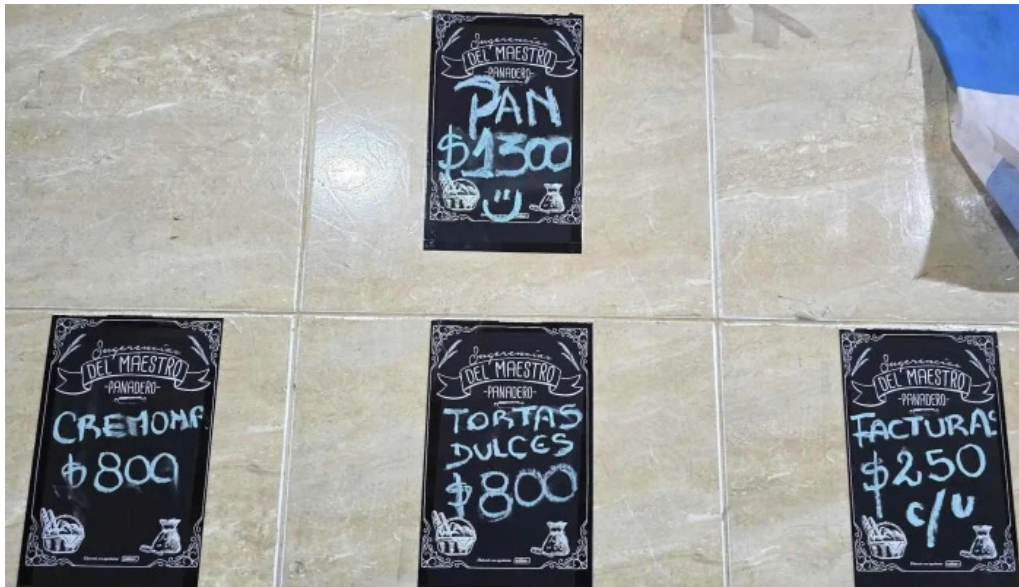 Sugerencias
DEL MAESTRO
-PANADERO-
PAN
$1300
Sugerencias
DEL MAESTRO
-PANADERO-
CREMONA
$800
Sugerencias
DEL MAESTRO
-PANADERO-
TORTAS
DULCES
$800
Sugerencias
DEL MAESTRO
-PANADERO-
FACTURAS
$250
c/u